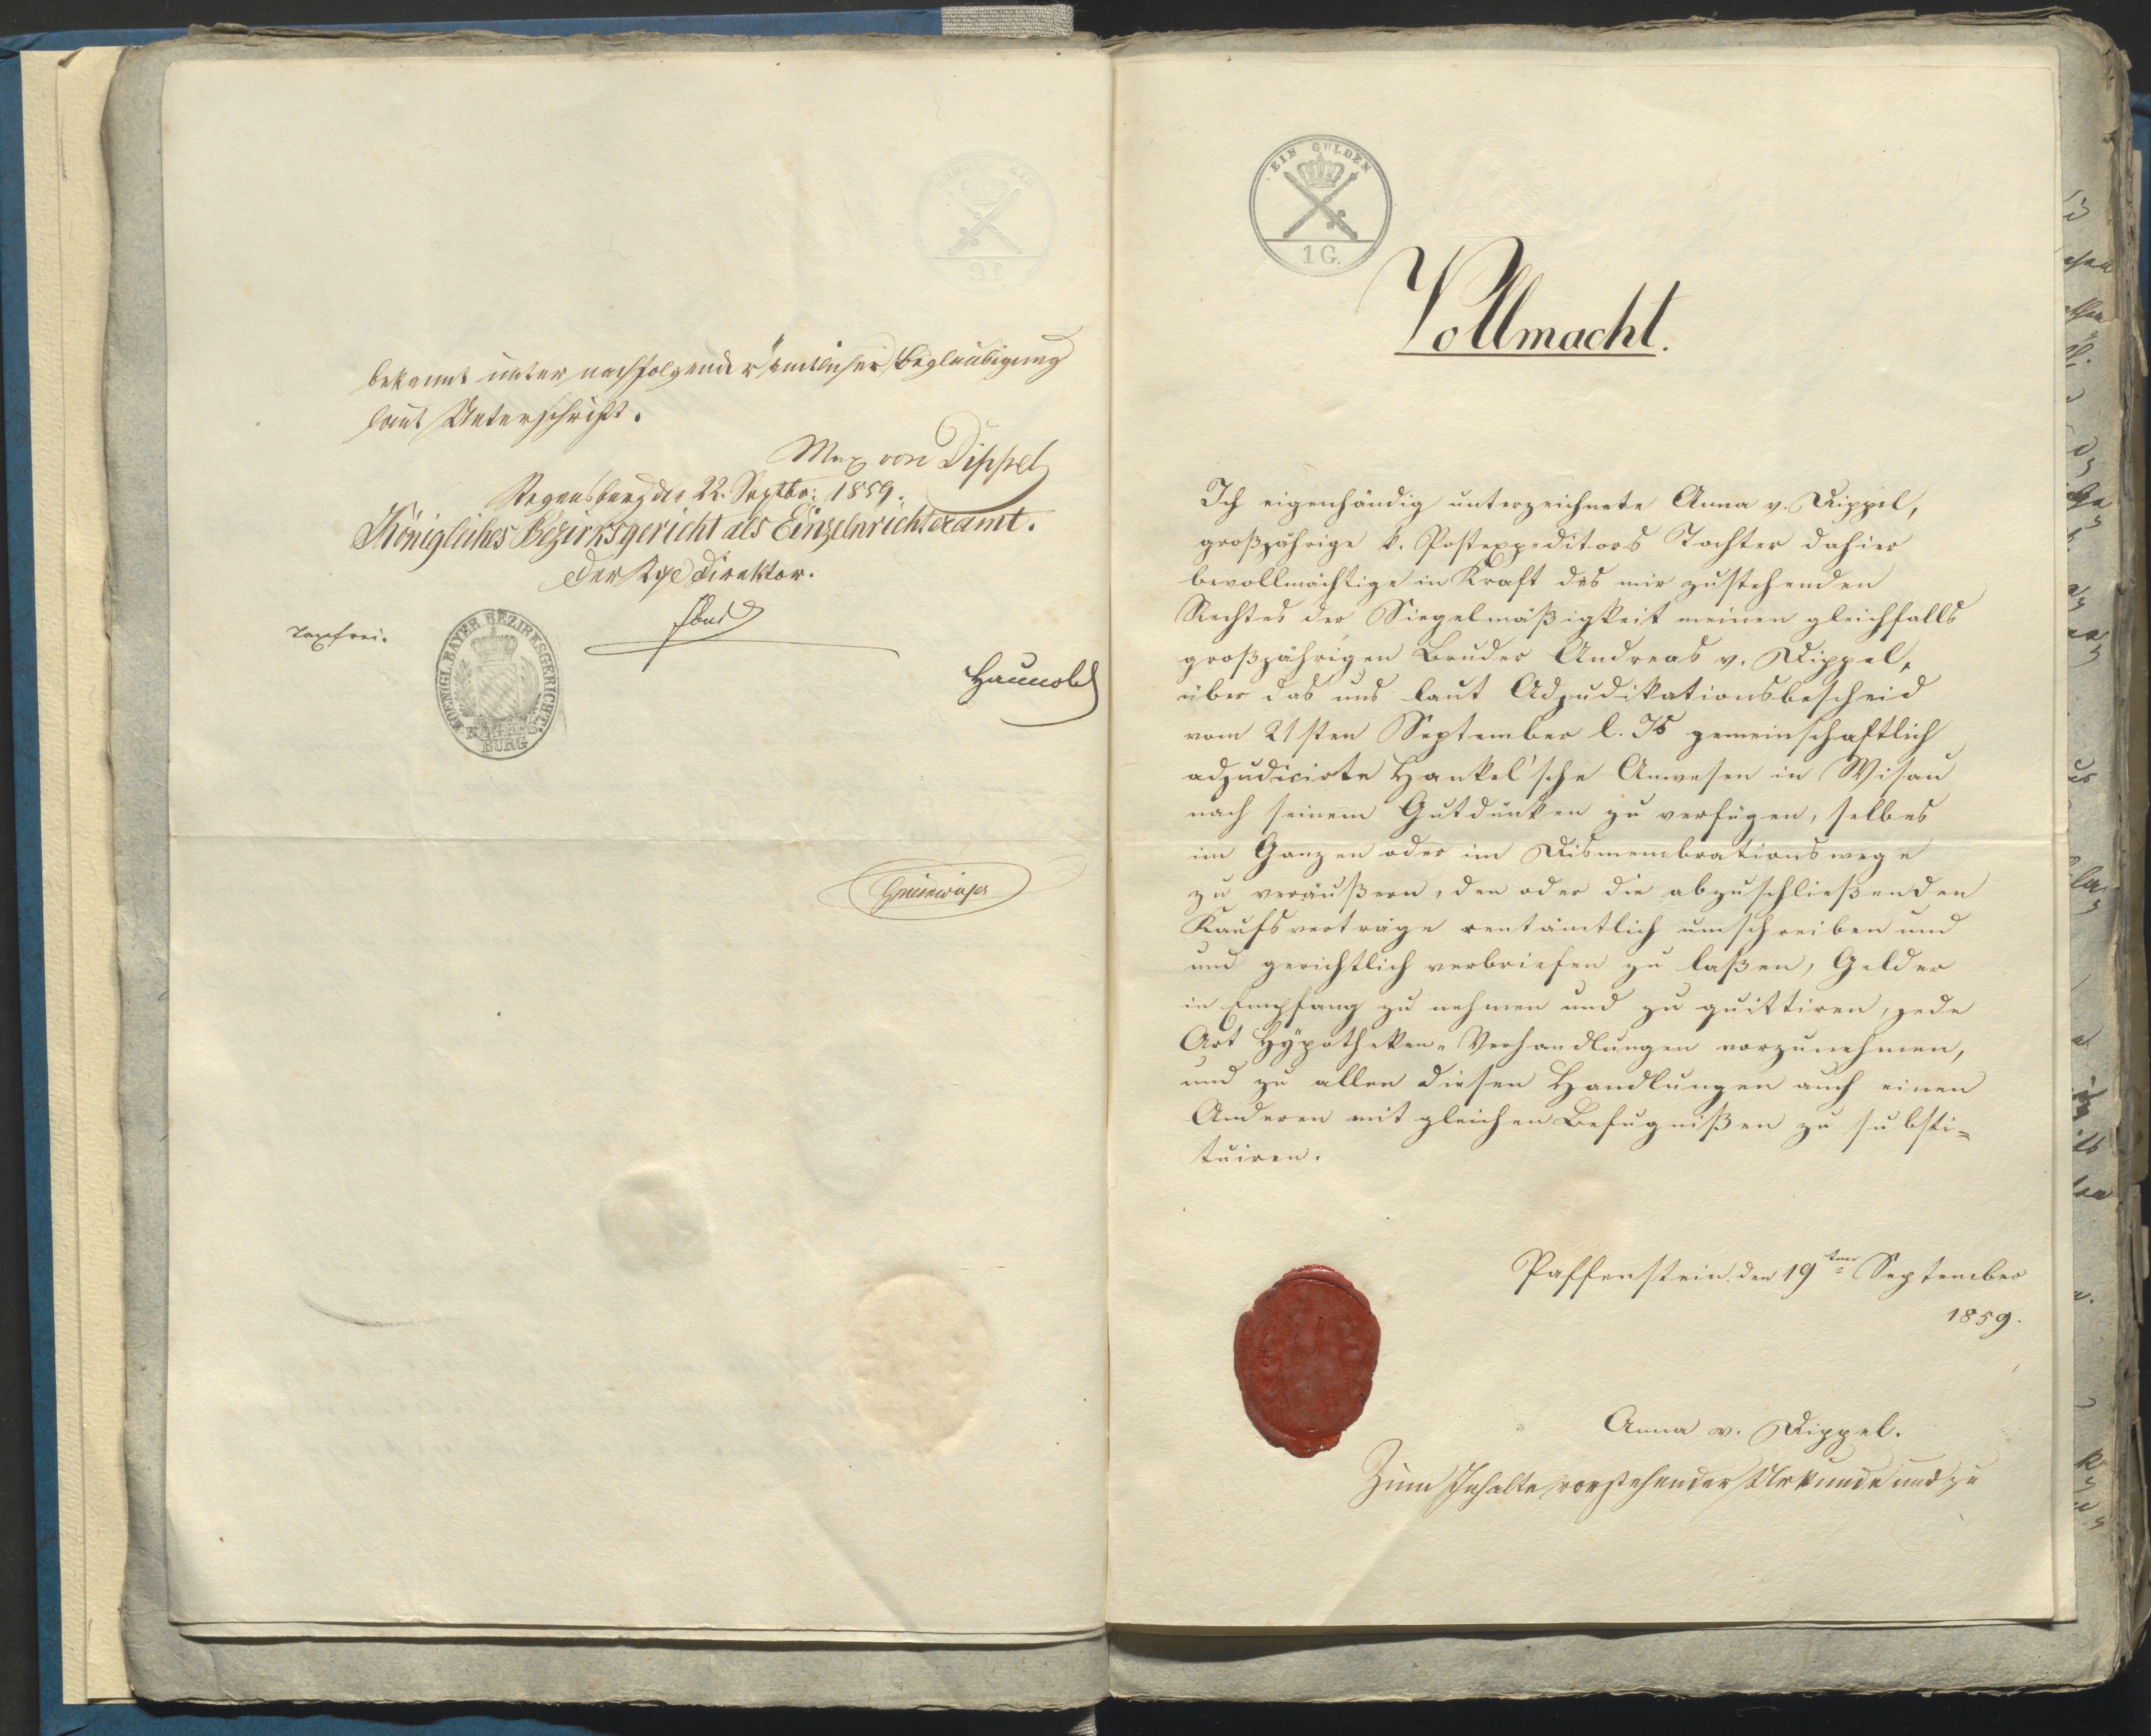 bekennt unter nachfolgender ämtlicher Beglaubigung
laut Unterschrift.
Max von Dippel
Regensburg den 22. Septbr: 1859.
Königliches Bezirksgericht als Einzelnrichteramt.
Der Kgl Direktor.
taxfrei.
KOENIGL. BAYER. BEZIRKSGERICHT.
REGENS
BURG
Haunold
EIN GULDEN
1 G.
Vollmacht.
Ich eigenhändig unterzeichnete Anna v. Dippel,
großjährige k. Postexpeditors Tochter dahier
bevollmächtige in Kraft des mir zustehenden
Rechtes der Siegelmäßigkeit meinen gleichfalls
großjährigen Bruder Andreas v. Dippel,
über das uns laut Adjudikationsbescheid
vom 21sten September l. Js gemeinschaftlich
adjudicirte Hankel'sche Anwesen in Wisau
nach seinem Gutdünken zu verfügen, selbes
im Ganzen oder im Dismembrationswege
zu veräußern, den oder die abzuschließenden
Kaufsverträge rentämtlich umschreiben und
und gerichtlich verbriefen zu laßen, Gelder
in Empfang zu nehmen und zu quittiren, jede
Art Hypotheken-Verhandlungen vorzunehmen,
und zu allen diesen Handlungen auch einen
Anderen mit gleichen Befugnißen zu substi-
tuiren.
Paffenstein den 19ten September
1859.
Anna v. Dippel.
Zum Inhalte vorstehender Urkunde und zu